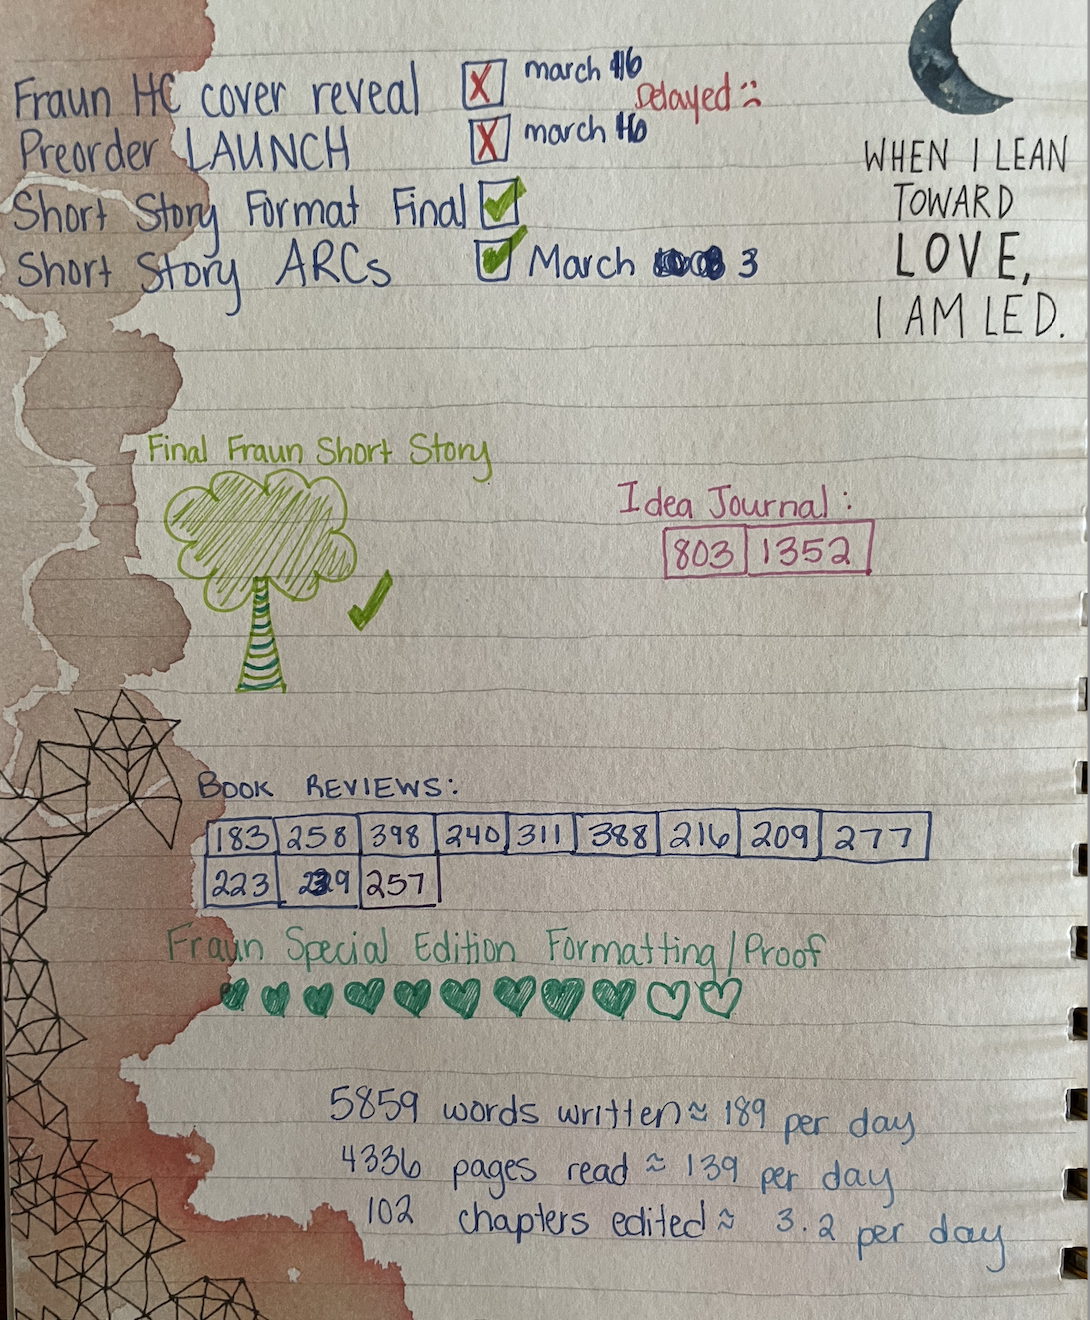 Fraun HC cover reveal march 16
Delayed :(
Preorder LAUNCH march 16
Short Story Format Final
Short Story ARCs March 3
WHEN I LEAN
TOWARD
LOVE,
I AM LED.
Final Fraun Short Story
Idea Journal:
803 1352
BOOK REVIEWS:
183 258 398 240 311 388 216 209 277
223 229 257
Fraun Special Edition Formatting/Proof
5859 words written ≈ 189 per day
4336 pages read ≈ 139 per day
102 chapters edited ≈ 3.2 per day